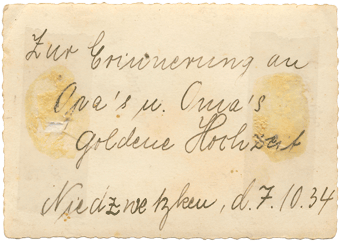 Zur Erinnerung an
Opa's u. Oma's
goldene Hochzeit
Niedzwetzken, d. 7. 10. 34